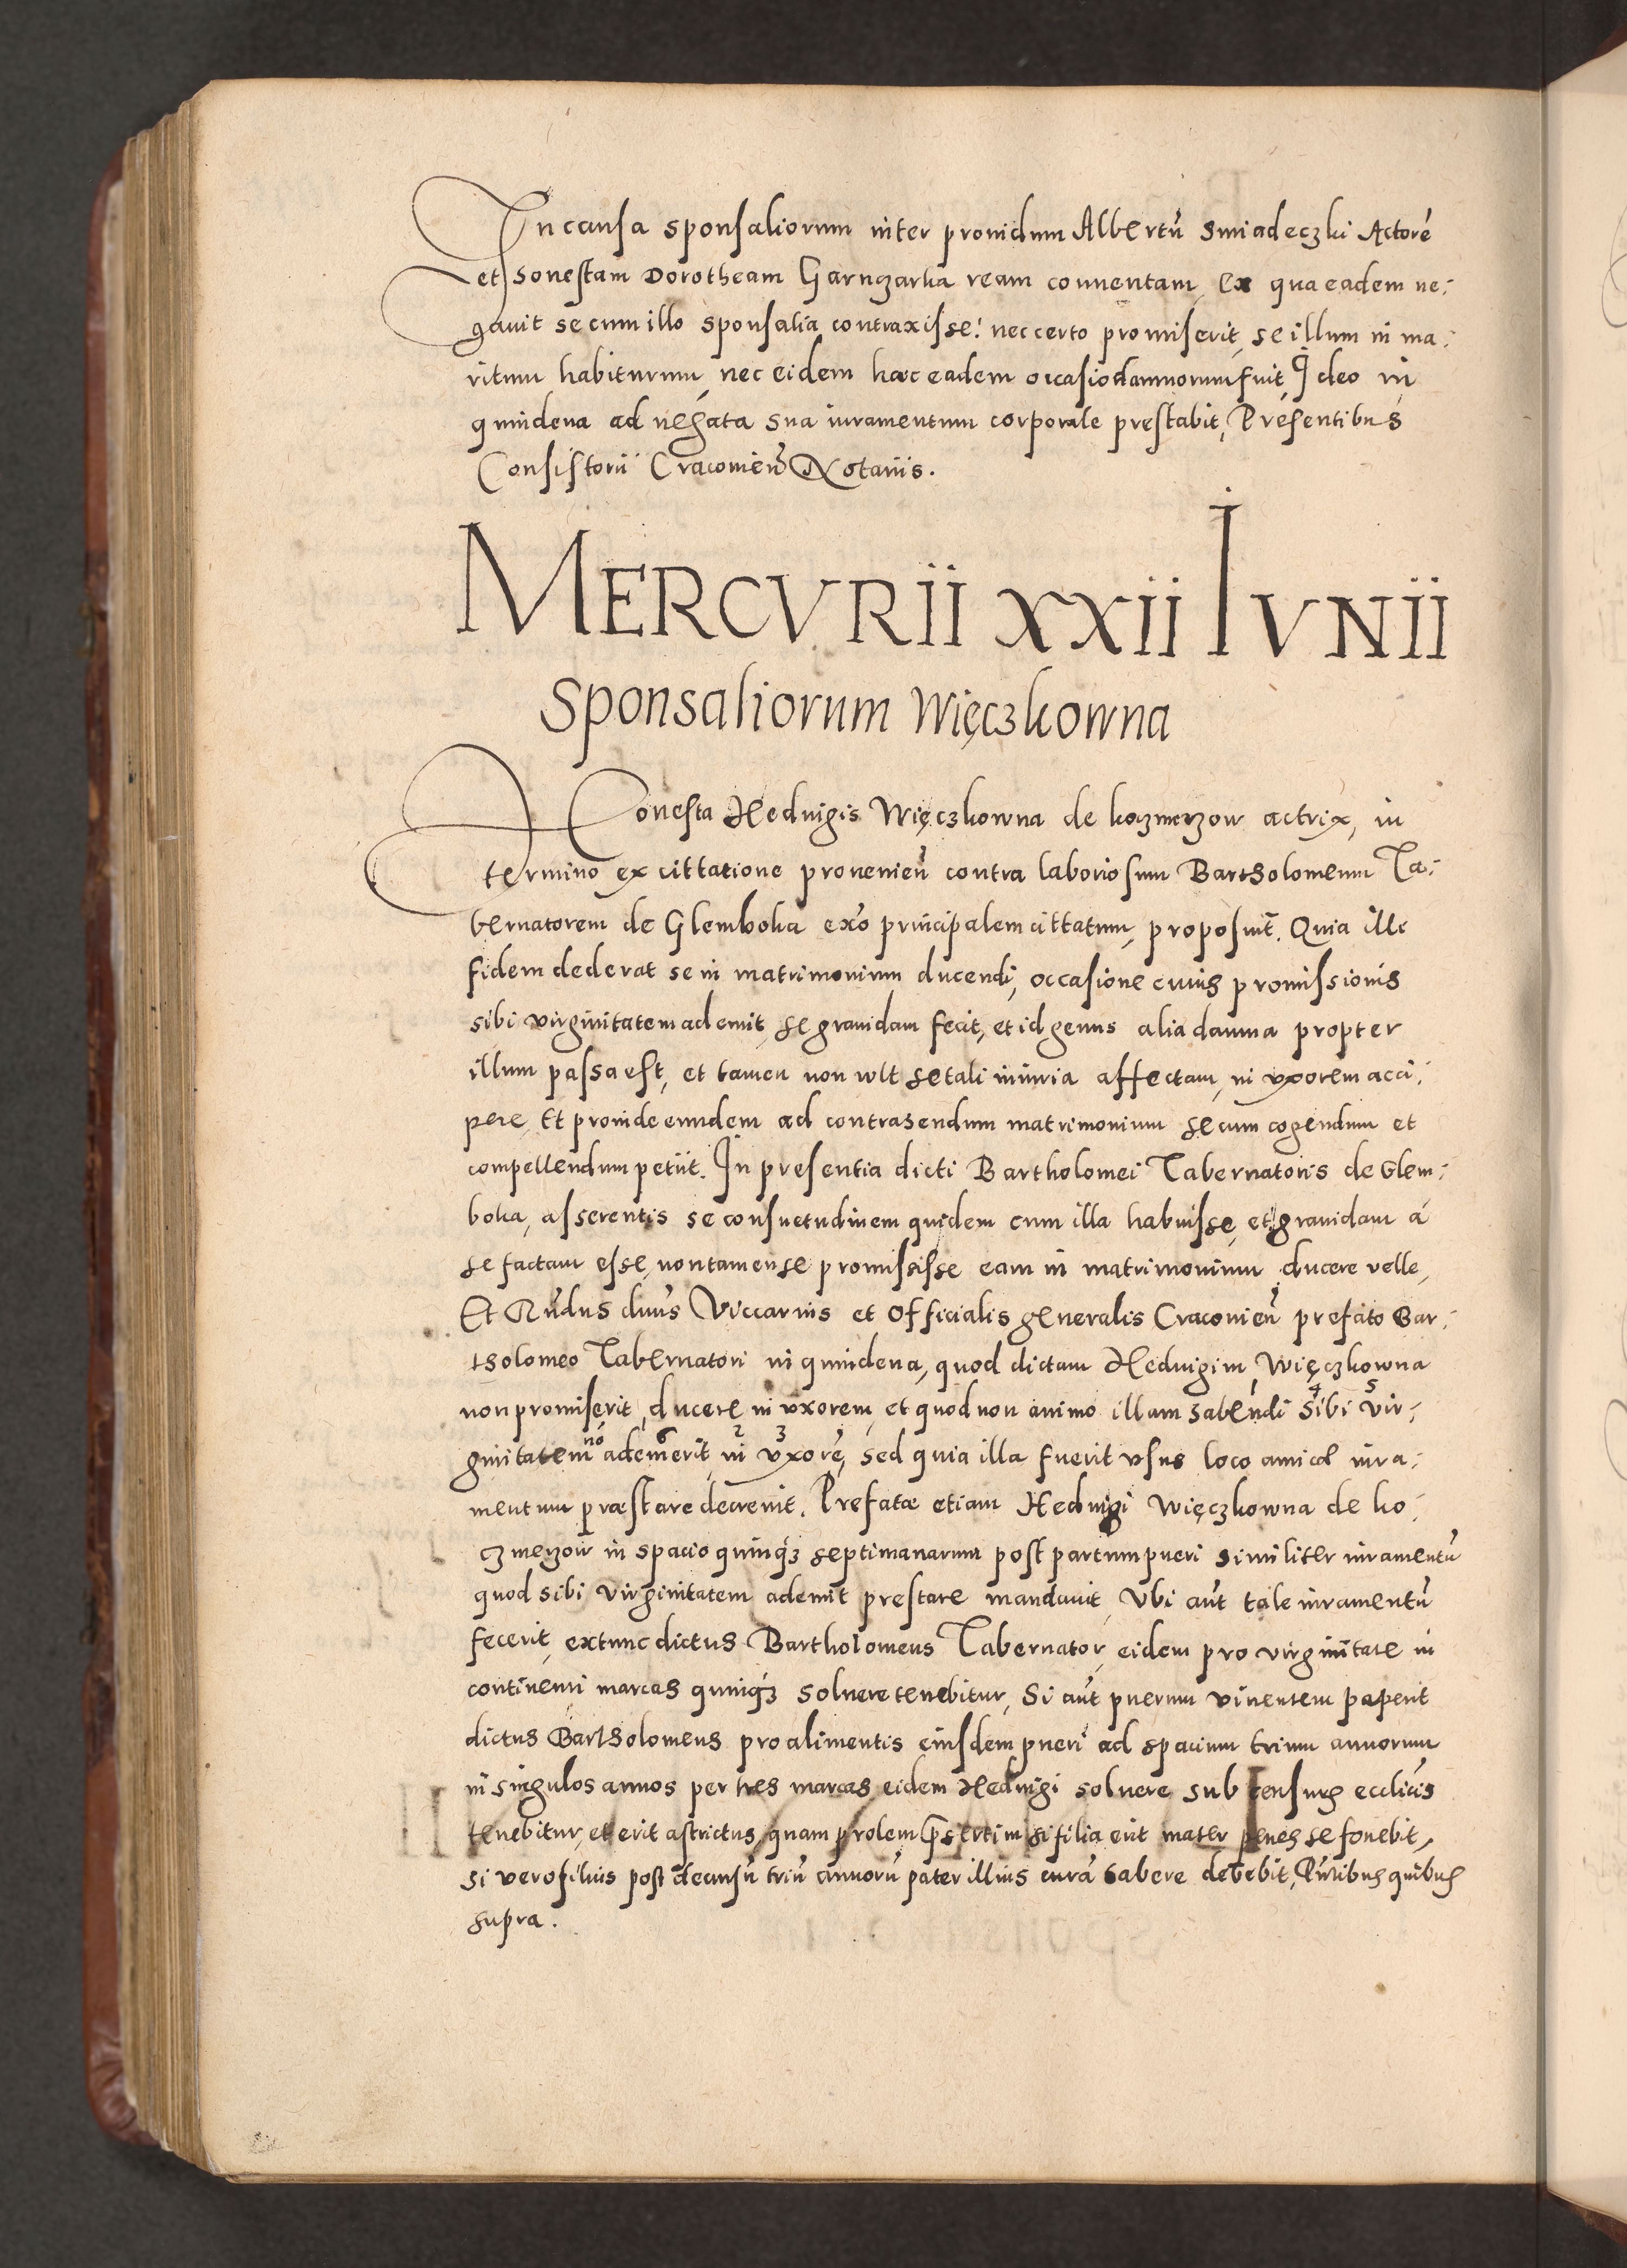 In causa sponsaliorum inter prouidum Albertū Smiadeczki Actorē
et honestam Dorotheam Garnczarka ream conuentam, ex qua eadem ne:
gauit se cum illo sponsalia contraxisse: nec certo promiserit, se illum in ma:
ritum habiturum, nec eidem hæc eadem occasio damnorum fuit, Ideo in
quindena ad negata sua iuramentum corporale prestabit, Presentibus
Consistorii Cracouień Notariis.
MERCVRII XXII IVNII
Sponsaliorum Więczkowna
Honesta Hedvigis Więczkowna de koczmerzow actrix, in
termino ex cittatione prouenień contra laboriosum Bartholomeum Ta:
bernatorem de Glemboka exo principalem cittatum, proposuit. Quia illi
fidem dederat se in matrimonium ducendi, occasione cuius promissionis
sibi virginitatem ademit, se grauidam fecit, et id genus alia damna propter
illum passa est, et tamen non wlt se tali iniuria affectam, in vxorem acci:
pere, Et proinde eundem ad contrahendum matrimonium secum cogendum et
compellendum petiit. In presentia dicti Bartholomei Tabernatoris de Glem:
boka, asserentis se consuetudinem quidem cum illa habuisse, et grauidam a
se factam esse, non tamen se promisisse eam in matrimonium ducere velle,
Et Rndus dnus Viccarius et Officialis generalis Cracouień prefato Bar:
tholomeo Tabernatori in quindena, quod dictam Hedvigim Więczkowna
non promiserit, ducere in vxorem, et quod non animo illam habendi 4 sibi 5 vir:
ginitatem no 6 ademerit, 2 in 3 vxorē, sed quia illa fuerit vsus loco amicæ iura:
mentum præstare decreuit. Prefatæ etiam Hedvigi Więczkowna de ko:
czmerzow in spacio quinqʒ septimanarum post partum pueri similiter iuramentū
quod sibi virginitatem ademit prestare mandauit, Vbi aūt tale iuramentū
fecerit, extunc dictus Bartholomeus Tabernator, eidem pro virginitate in
continenti marcas quinqʒ soluere tenebitur, Si aūt puerum viuentem paperit
dictus Bartholomeus pro alimentis eiusdem pueri ad spacium trium annorum
in singulos annos per tres marcas eidem Hedvigi soluere sub censuris ecclīcis
tenebitur, et erit astrictus, quam prolem p̄sertim si filia erit mater penes se fouebit,
si vero filius post decursū triū annorū pater illius curā habere debebit, Pn̄tibus quibus
supra.